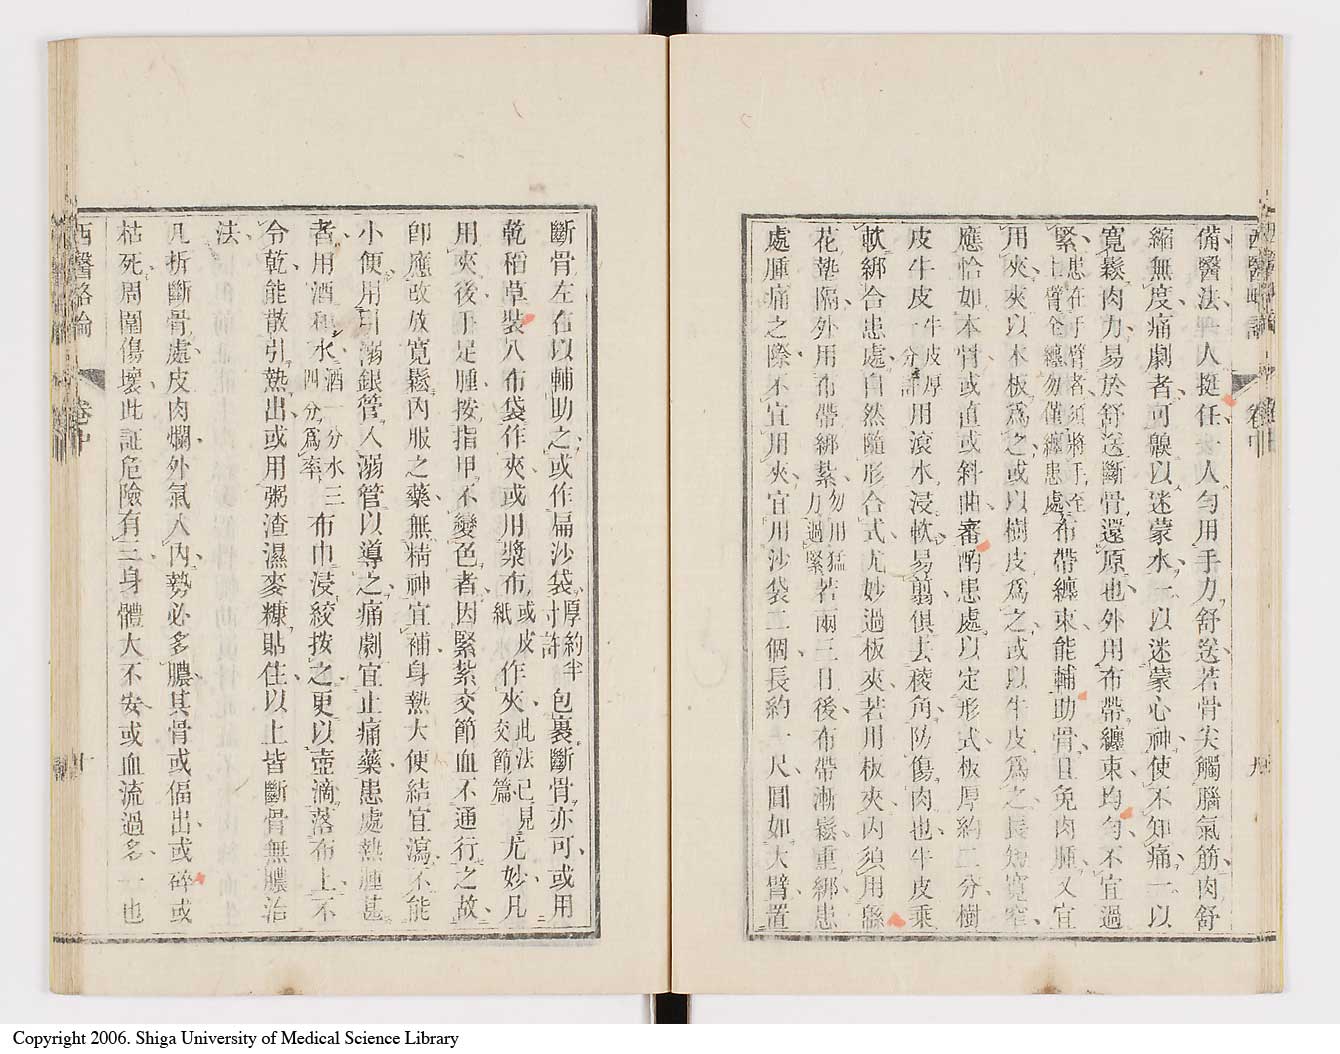 西醫略論 卷中
備醫法一人挺任一人勻用手力舒送若骨尖觸腦氣筋肉舒
縮無度痛劇者可齅以迷蒙水一以迷蒙心神使不知痛一以
寬鬆肉力易於舒送斷骨還原也外用布帶纏束均勻不宜過
緊患在肘臂者須將手至上臂仝纏勿僅纏患處布帶纏束能輔助骨且免肉腫又宜
用夾夾以木板為之或以樹皮為之或以牛皮為之長短寬窄
應恰如本骨或直或斜曲審酌患處以定形式板厚約二分樹
皮牛皮一牛皮厚分許用滾水浸軟易翦俱去稜角防傷肉也牛皮乘
軟綁合患處自然隨形合式尤妙過板夾若用板夾內須用緜
花墊隔外用布帶綁紮勿用猛力過緊若兩三日後布帶漸鬆重綁患
處腫痛之際不宜用夾宜用沙袋二個長約一尺圓如大臂置
斷骨左右以輔助之或作扁沙袋厚約半寸許包裹斷骨亦可或用
乾稻草裝入布袋作夾或用漿布或皮紙作夾此法已見交節篇尤妙凡
用夾後手足腫按指甲不變色者因緊紮交節血不通行之故
卽應改放寬鬆內服之藥無精神宜補身熱大便結宜瀉不能
小便用引溺銀管入溺管以導之痛劇宜止痛藥患處熱腫甚
者用酒和水酒一分水三四分為率布巾浸絞按之更以壺滴落布上不
令乾能散引熱出或用粥渣濕麥糠貼住以上皆斷骨無膿治
法
凡折斷骨處皮肉爛外氣入內勢必多膿其骨或偪出或碎或
枯死周圍傷壞此証危險有三身體大不安或血流過多一也
西醫略論 卷中 十
Copyright 2006. Shiga University of Medical Science Library